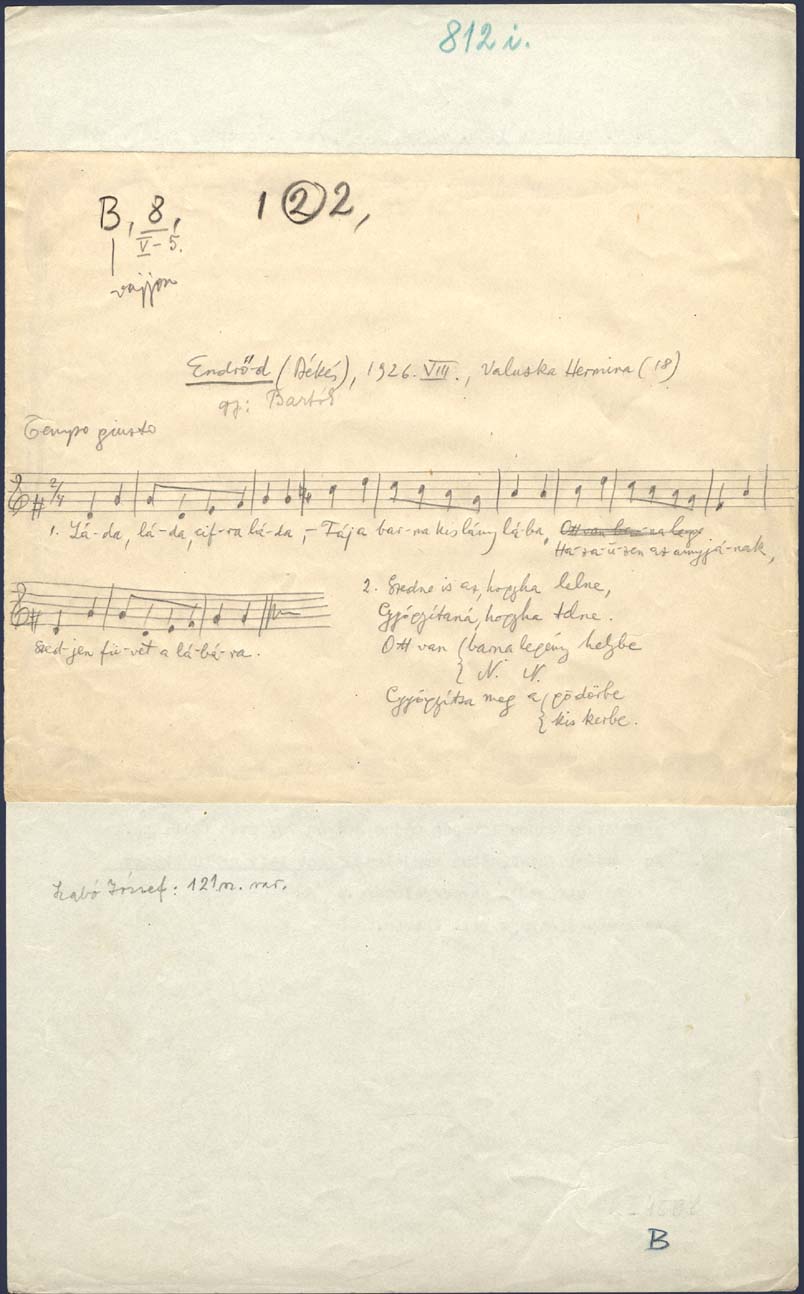 812 i.
B, 8, 1 2 2,
V-5.
vajjon
Endrő-d (Békés), 1926. VIII., Valuska Hermina (18)
gy: Bartók
Tempo giusto
2/4
1. Lá-da, lá-da, cif-ra lá-da, – Fáj a bar-na kis lány lá-ba, Ott van bar-na legé
Ha-za-ü-zen az annyjá-nak,
Szed-jen fü-vet a lá-bá-ra.
2. Szedne is az, hogyha lelne,
Gyógyítaná, hogyha tudne.
Ott van { barna legény helybe
{ N. N.
Gyógyítsa meg a { gödörbe
{ kis kerbe.
Szabó József: 121 sz. var.
B